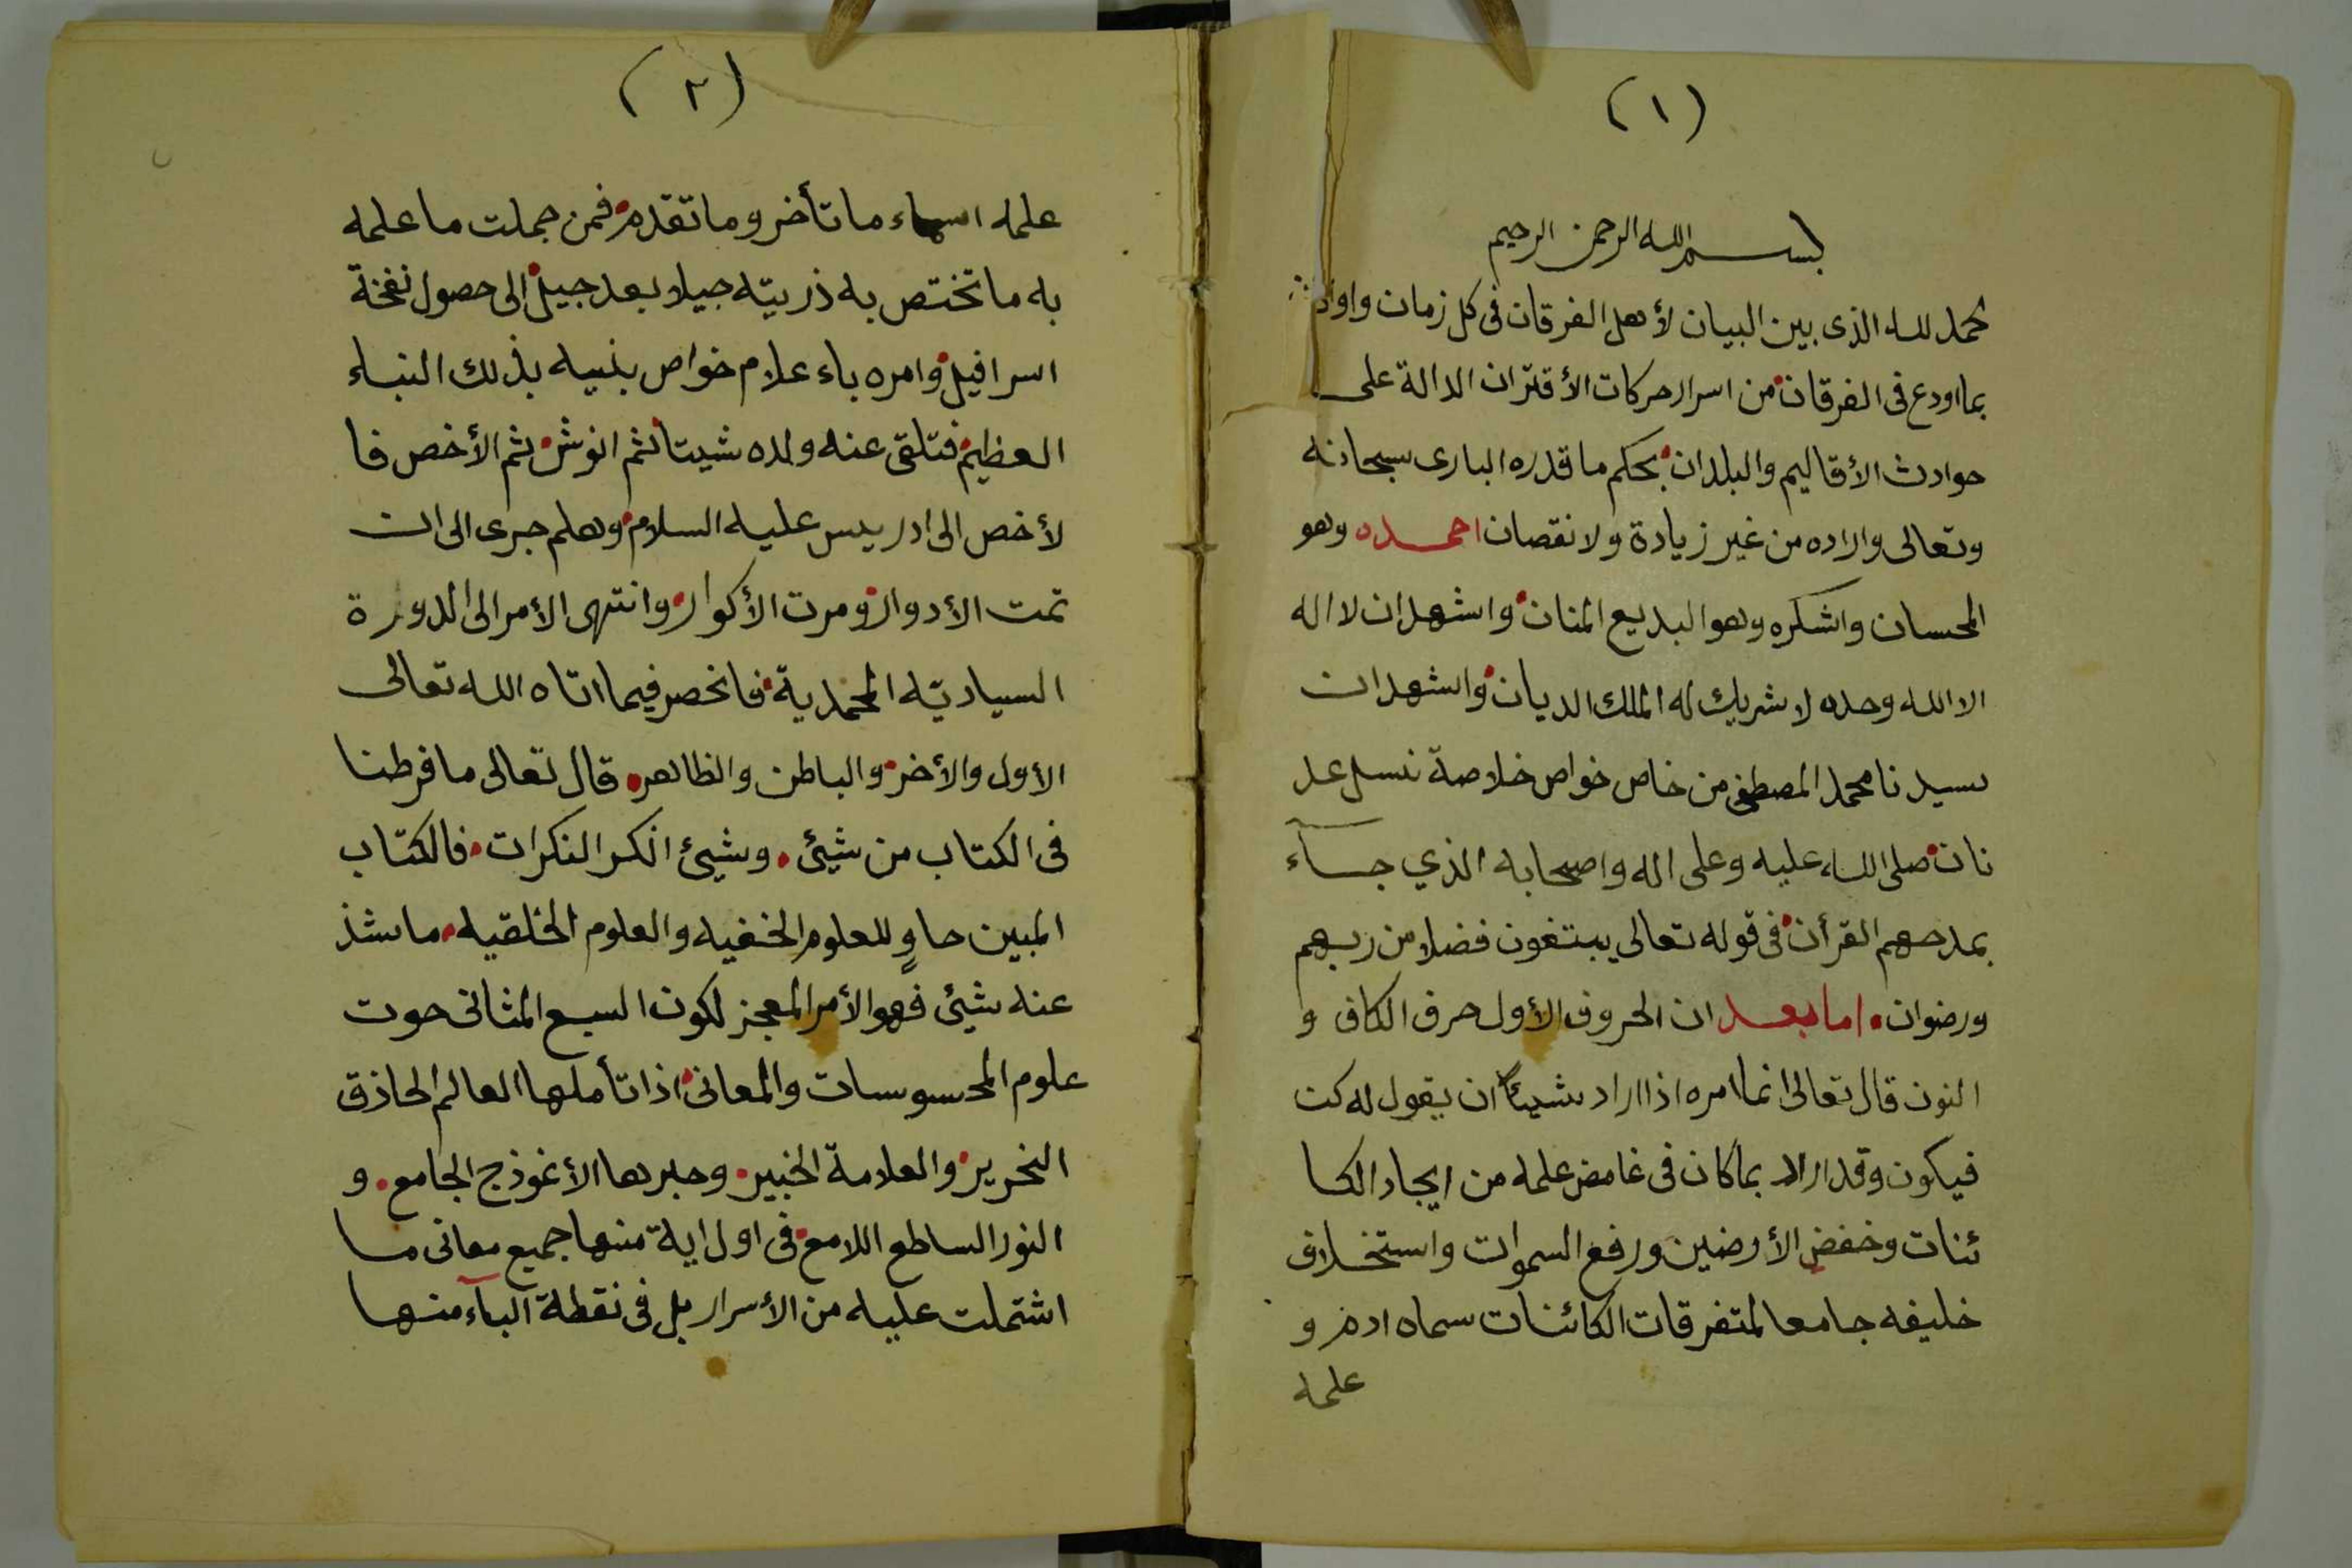 (١)
بسم الله الرحمن الرحيم
لحمد لله الذى بين البيان لأهل الفرقان فى كل زمان واوان
بما اودع فى الفرقان من اسرار حركات الأقتران الدالة على
حوادث الأقاليم والبلدان بحكم ما قدره البارى سبحانه
وتعالى واراده من غير زيادة ولا نقصان احمده وهو
المحسان واشكره وهو البديع المنان واشهد ان لا اله
الا الله وحده لا شريك له الملك الديان واشهد ان
سيدنا محمد المصطفى من خاص خواص خلاصة نسل عد
نان صلى الله عليه وعلى اله واصحابه الذي جسآء
بمدحهم القرأن فى قوله تعالى يبتغون فضلا من ربهم
ورضوان اما بعد ان الحروف الأول حرف الكاف و
النون قال تعالى انما امره اذا اراد شيئا ان يقول له كن
فيكون وقد اراد بما كان فى غامض علمه من ايجاد الكا
ئنات وخفض الأرضين ورفع السموات واستخلاف
خليفه جامعا لمتفرقات الكائنات سماه ادم و
علمه
(٢)
علمه اسماء ما تأخر وما تقدم فمن جملت ما علمه
به ما تختص به ذريته جيلا بعد جيل الى حصول نفخة
اسرافيل وامره باء علام خواص بنيه بذلك النباء
العظيم فتلقى عنه ولده شيتا ثم انوش ثم الأخص فا
لأخص الى ادريس عليه السلام وهلم جرى الى ان
تمت الأدوار ومرت الأكوار وانتهى الأمر الى الدورة
السياديّه المحمدية فانحصر فيما اتاه الله تعالى
الأول والأخر والباطن والظاهر قال تعالى ما فرطنا
فى الكتاب من شيئ وشيئ انكر النكرات فالكتاب
المبين حاوٍ للعلوم الخفيه والعلوم الخلقيه ما شذ
عنه شيئ فهو الأمر المعجز لكون السبع المثانى حوت
علوم المحسوسات والمعانى اذا تأملها العالم الحاذق
النحرير والعلامة الخبير وجبرها الأنموذج الجامع و
النور الساطع اللامع فى اول اية منها جميع معانى ما
اشتملت عليه من الأسرار بل فى نقطة البآء منها